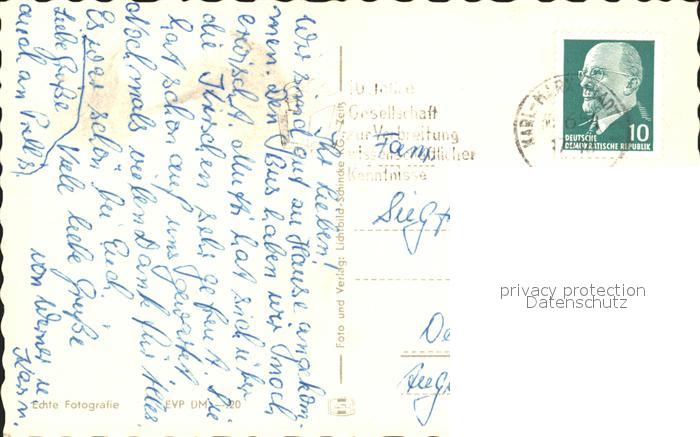 Ihr Lieben!
Wir sind gut zu Hause angekom-
men. Den Bus haben wir noch
erwischt. Mutti hat sich über
die Kirschen sehr gefreut. Sie
hat schon auf uns gewartet.
Nochmals vielen Dank für alles.
Es war schön bei Euch.
Viele liebe Grüße
von Werner u.
Karin.
Liebe Grüße
auch an
Echte Fotografie
EVP DM -,20
Foto und Verlag: Lichtbild-Schincke KG, Zeitz
10 Jahre
Gesellschaft
zur Verbreitung
wissenschaftlicher
Kenntnisse
KARL-MARX-STADT
10
DEUTSCHE
DEMOKRATISCHE REPUBLIK
Fam
Siegf
privacy protection
Datenschutz